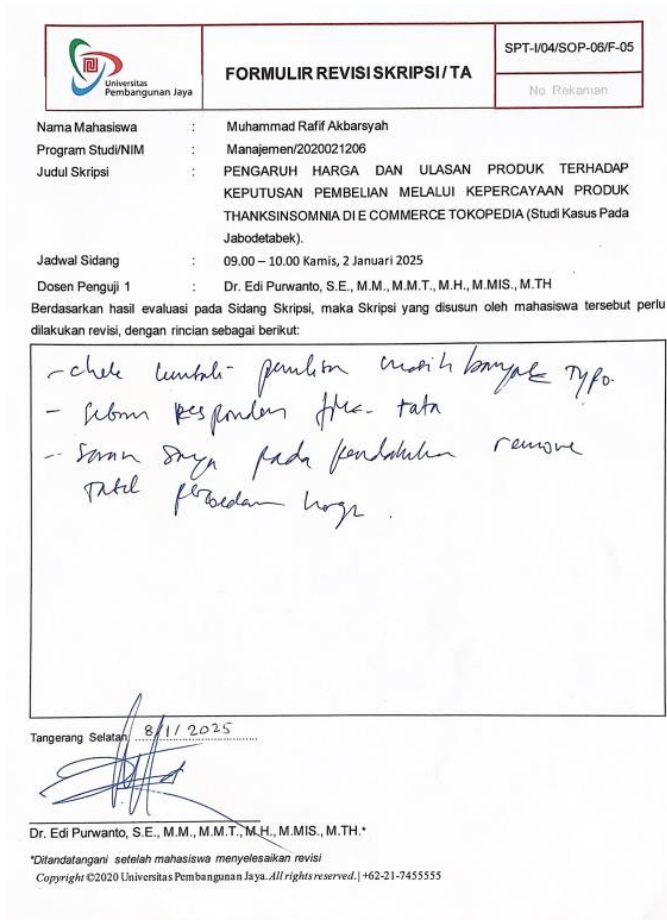 Universitas
Pembangunan Jaya
FORMULIR REVISI SKRIPSI / TA
SPT-I/04/SOP-06/F-05
No Rekaman
Nama Mahasiswa : Muhammad Rafif Akbarsyah
Program Studi/NIM : Manajemen/2020021206
Judul Skripsi : PENGARUH HARGA DAN ULASAN PRODUK TERHADAP
KEPUTUSAN PEMBELIAN MELALUI KEPERCAYAAN PRODUK
THANKSINSOMNIA DI E COMMERCE TOKOPEDIA (Studi Kasus Pada
Jabodetabek).
Jadwal Sidang : 09.00 – 10.00 Kamis, 2 Januari 2025
Dosen Penguji 1 : Dr. Edi Purwanto, S.E., M.M., M.M.T., M.H., M.MIS., M.TH
Berdasarkan hasil evaluasi pada Sidang Skripsi, maka Skripsi yang disusun oleh mahasiswa tersebut perlu
dilakukan revisi, dengan rincian sebagai berikut:
- masih banyak Typo.
- responden
- Saran saya pada pendahuluan remove
Tabel perbedaan harga.
Tangerang Selatan, 8/1/2025
Dr. Edi Purwanto, S.E., M.M., M.M.T., M.H., M.MIS., M.TH.*
*Ditandatangani setelah mahasiswa menyelesaikan revisi
Copyright ©2020 Universitas Pembangunan Jaya. All rights reserved. | +62-21-7455555